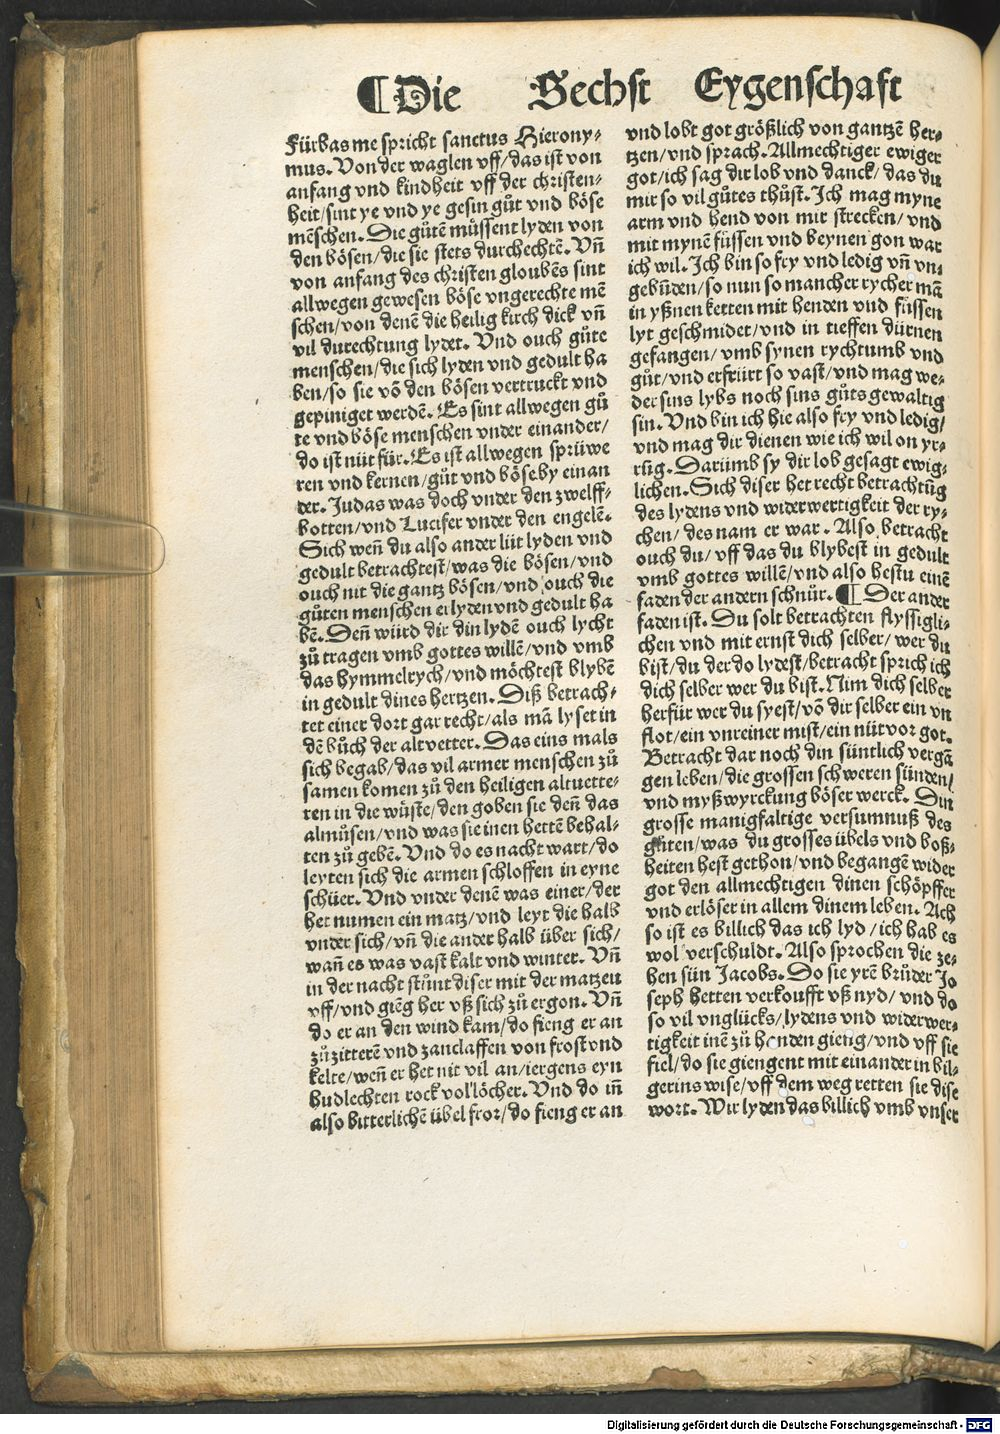 ¶Die Sechst Eygenschaft
Fürbas me spricht sanctus Hierony⸗
mus. Von der waglen vff/das ist von
anfang vnd kindheit vff der christen⸗
heit/sint ye vnd ye gesin gůt vnd böse
mēschen. Die gůtē müssent lyden von
den bösen/die sie stets durchechtē. Vñ
von anfang des christen gloubēs sint
allwegen gewesen böse vngerechte mē
schen/von denē die heilig kirch dick vñ
vil durechtung lydet. Vnd ouch gůte
menschen/die sich lyden vnd gedult ha
ben/so sie vō den bösen vertruckt vnd
gepiniget werdē. Es sint allwegen gů
te vnd böse menschen vnder einander/
do ist nüt für. Es ist allwegen sprüwe
ren vnd kernen/gůt vnd böse by einan
der. Judas was doch vnder den zwelff⸗
botten/vnd Lucifer vnder den engelē.
Sich weñ du also ander lüt lyden vnd
gedult betrachtest/was die bösen/vnd
ouch nit die gantz bösen/vnd ouch die
gůten menschen erlyden vnd gedult ha
bē. Deñ würd dir din lydē ouch lycht
zů tragen vmb gottes willē/vnd vmb
das hymmelrych/vnd möchtest blybē
in gedult dines hertzen. Diß betrach⸗
tet einer dort gar recht/als mā lyset in
dē bůch der altvetter. Das eins mals
sich begab/das vil armer menschen zů
samen komen zů den heiligen altuette⸗
ren in die wüste/den goben sie deñ das
almůsen/vnd was sie inen hettē behal⸗
ten zů gebē. Vnd do es nacht wart/do
leyten sich die armen schloffen in eyne
schüer. Vnd vnder denē was einer/der
het numen ein matz/vnd leyt die halb
vnder sich/vñ die ander halb über sich/
wañ es was vast kalt vnd winter. Vñ
in der nacht stůnt diser mit der matzen
vff/vnd giēg her vß sich zů ergon. Vñ
do er an den wind kam/do fieng er an
zů zitterē vnd zanclaffen von frost vnd
kelte/weñ er het nit vil an/iergens eyn
hudlechten rock vol löcher. Vnd do iñ
also bitterlichē übel fror/do fieng er an
vnd lobt got größlich von gantzē her⸗
tzen/vnd sprach. Allmechtiger ewiger
got/ich sag dir lob vnd danck/das du
mir so vil gůtes thůst. Ich mag myne
arm vnd hend von mir strecken/vnd
mit mynē füssen vnd beynen gon war
ich wil. Ich bin so fry vnd ledig vñ vn⸗
gebūden/so nun so mancher rycher mā
in yßnen ketten mit henden vnd füssen
lyt geschmidet/vnd in tieffen dürnen
gefangen/vmb synen rychtumb vnd
gůt/vnd erfrürt so vast/vnd mag we⸗
der sins lybs noch sins gůts gewaltig
sin. Vnd bin ich hie also fry vnd ledig/
vnd mag dir dienen wie ich wil on yr⸗
rūg. Darūmb sy dir lob gesagt ewig⸗
lichen. Sich diser het recht betrachtūg
des lydens vnd widerwertigkeit der ry⸗
chen/des nam er war. Also betracht
ouch du/vff das du blybest in gedult
vmb gottes willē/vnd also hestu einē
faden der andern schnůr. ¶ Der ander
faden ist. Du solt betrachten flyssigli⸗
chen vnd mit ernst dich selber/wer du
bist/du der do lydest/betracht sprich ich
dich selber wer du bist. Nim dich selber
herfür wer du syest/vō dir selber ein vn
flot/ein vnreiner mist/ein nüt vor got.
Betracht dar noch din süntlich vergā
gen leben/die grossen schweren sünden/
vnd myßwyrckung böser werck. Din
grosse manigfaltige versumnuß des
gůten/was du grosses übels vnd boß⸗
heiten hest gethon/vnd begangē wider
got den allmechtigen dinen schöpffer
vnd erlöser in allem dinem leben. Ach
so ist es billich das ich lyd/ich hab es
wol verschuldt. Also sprochen die ze⸗
hen sün Jacobs. Do sie yrē brüder Jo
seph hetten verkoufft vß nyd/vnd do
so vil vnglücks/lydens vnd widerwer⸗
tigkeit inē zů handen gieng/vnd vff sie
fiel/do sie giengent mit einander in bil⸗
gerins wise/vff dem weg retten sie dise
wort. Wir lyden das billich vmb vnser
Digitalisierung gefördert durch die Deutsche Forschungsgemeinschaft - DFG